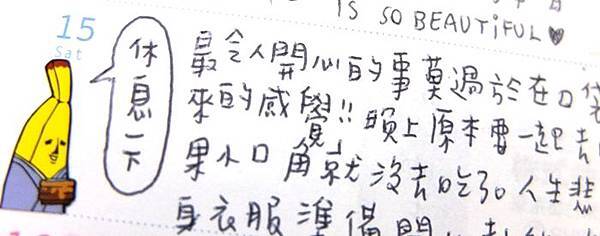 IS SO BEAUTIFUL♥
15
Sat
休息一下
最令人開心的事莫過於在口袋
來的感覺!! 晚上原本要一起去
果小口角就沒去吃了 人生悲
身衣服準備開